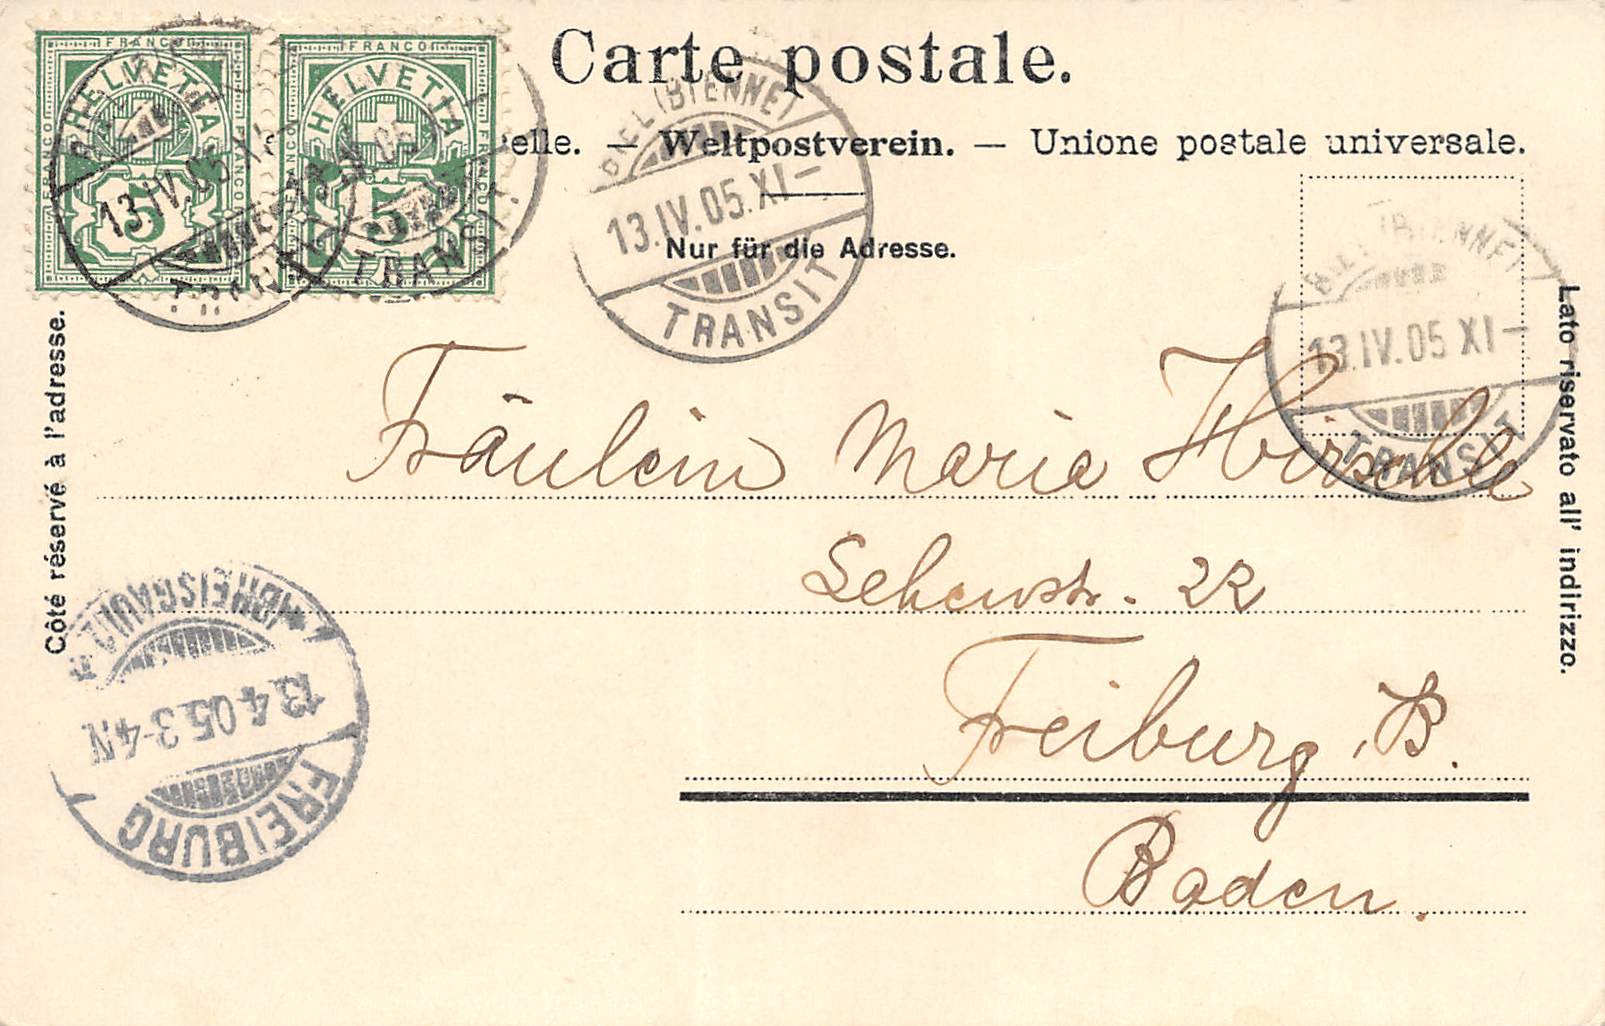 Carte postale.
elle. — Weltpostverein. — Unione postale universale.
Nur für die Adresse.
FRANCO
HELVETIA
FRANCO
FRANCO
5
FRANCO
HELVETIA
FRANCO
FRANCO
5
13.IV.05.XI
TRANSIT
13.IV.05
TRANSIT
BIEL (BIENNE)
13.IV.05.XI–
TRANSIT
BIEL (BIENNE)
13.IV.05 XI–
TRANSIT
Côté réservé à l'adresse.
Lato riservato all' indirizzo.
Fräulein Maria Hirschle
22
Freiburg, B.
Baden.
FREIBURG
13.4.05.3-4N